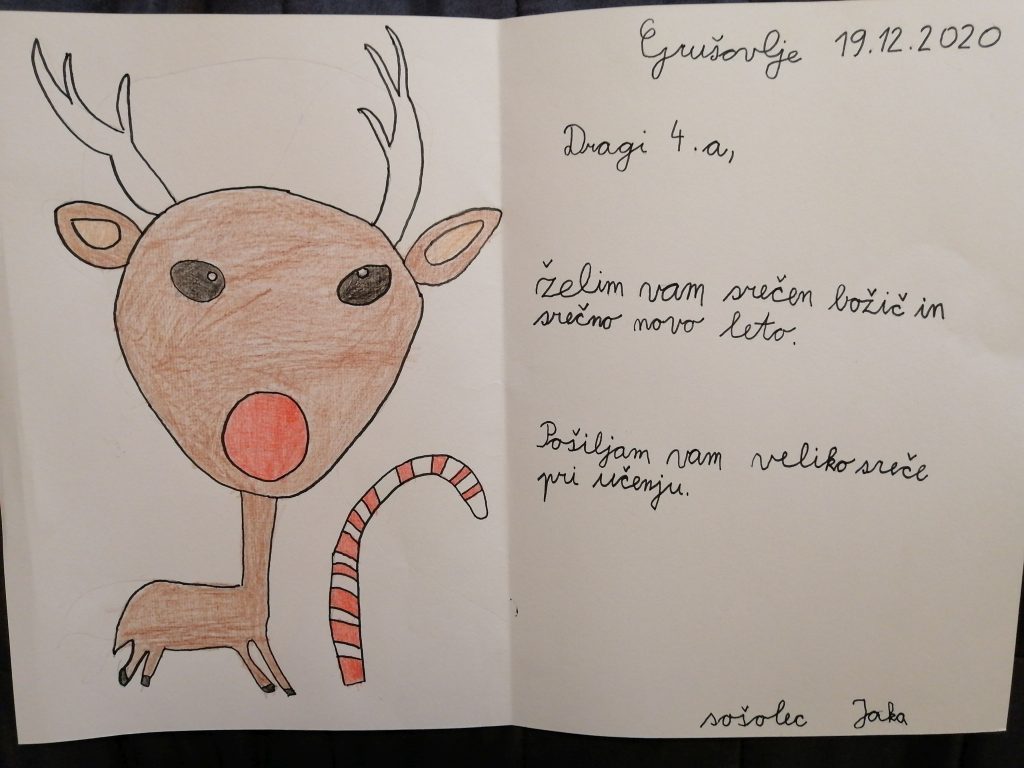 Grušovlje 19.12.2020
Dragi 4.a,
želim vam srečen božič in
srečno novo leto.
Pošiljam vam veliko sreče
pri učenju.
sošolec Jaka